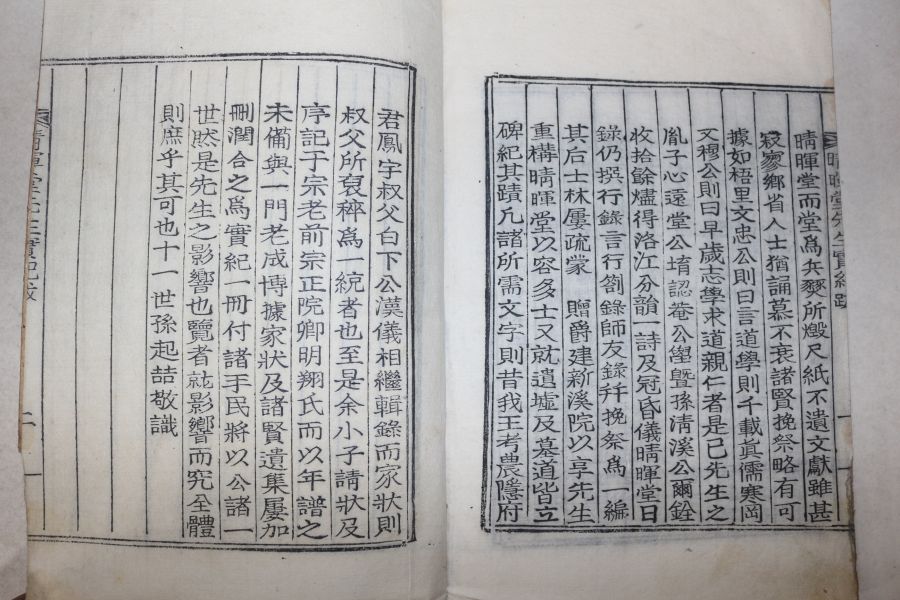 晴暉堂先生實紀跋
晴暉堂而堂爲兵燹所燬尺紙不遺文獻雖甚
寂寥鄉省人士猶誦慕不衰諸賢挽祭略有可
據如梧里文忠公則曰言道學則千載眞儒寒岡
文穆公則曰早歲志學求道親仁者是已先生之
胤子心遠堂公堉認菴公㙾曁孫淸溪公爾銓
收拾餘燼得洛江分韻一詩及冠昏儀晴暉堂日
錄仍撰行錄言行劄錄師友錄幷挽祭爲一編
其后士林屢疏蒙 贈爵建新溪院以享先生
重構晴暉堂以容多士又就遺墟及墓道皆立
碑紀其蹟凡諸所需文字則昔我王考農隱府
君鳳字叔父白下公漢儀相繼輯錄而家狀則
叔父所裒稡爲一統者也至是余小子請狀及
序記于宗老前宗正院卿明翔氏而以年譜之
未備與一門老成博據家狀及諸賢遺集屢加
刪潤合之爲實紀一冊付諸手民將以公諸一
世然是先生之影響也覽者玆影響而究全體
則庶乎其可也十一世孫起喆敬識
二